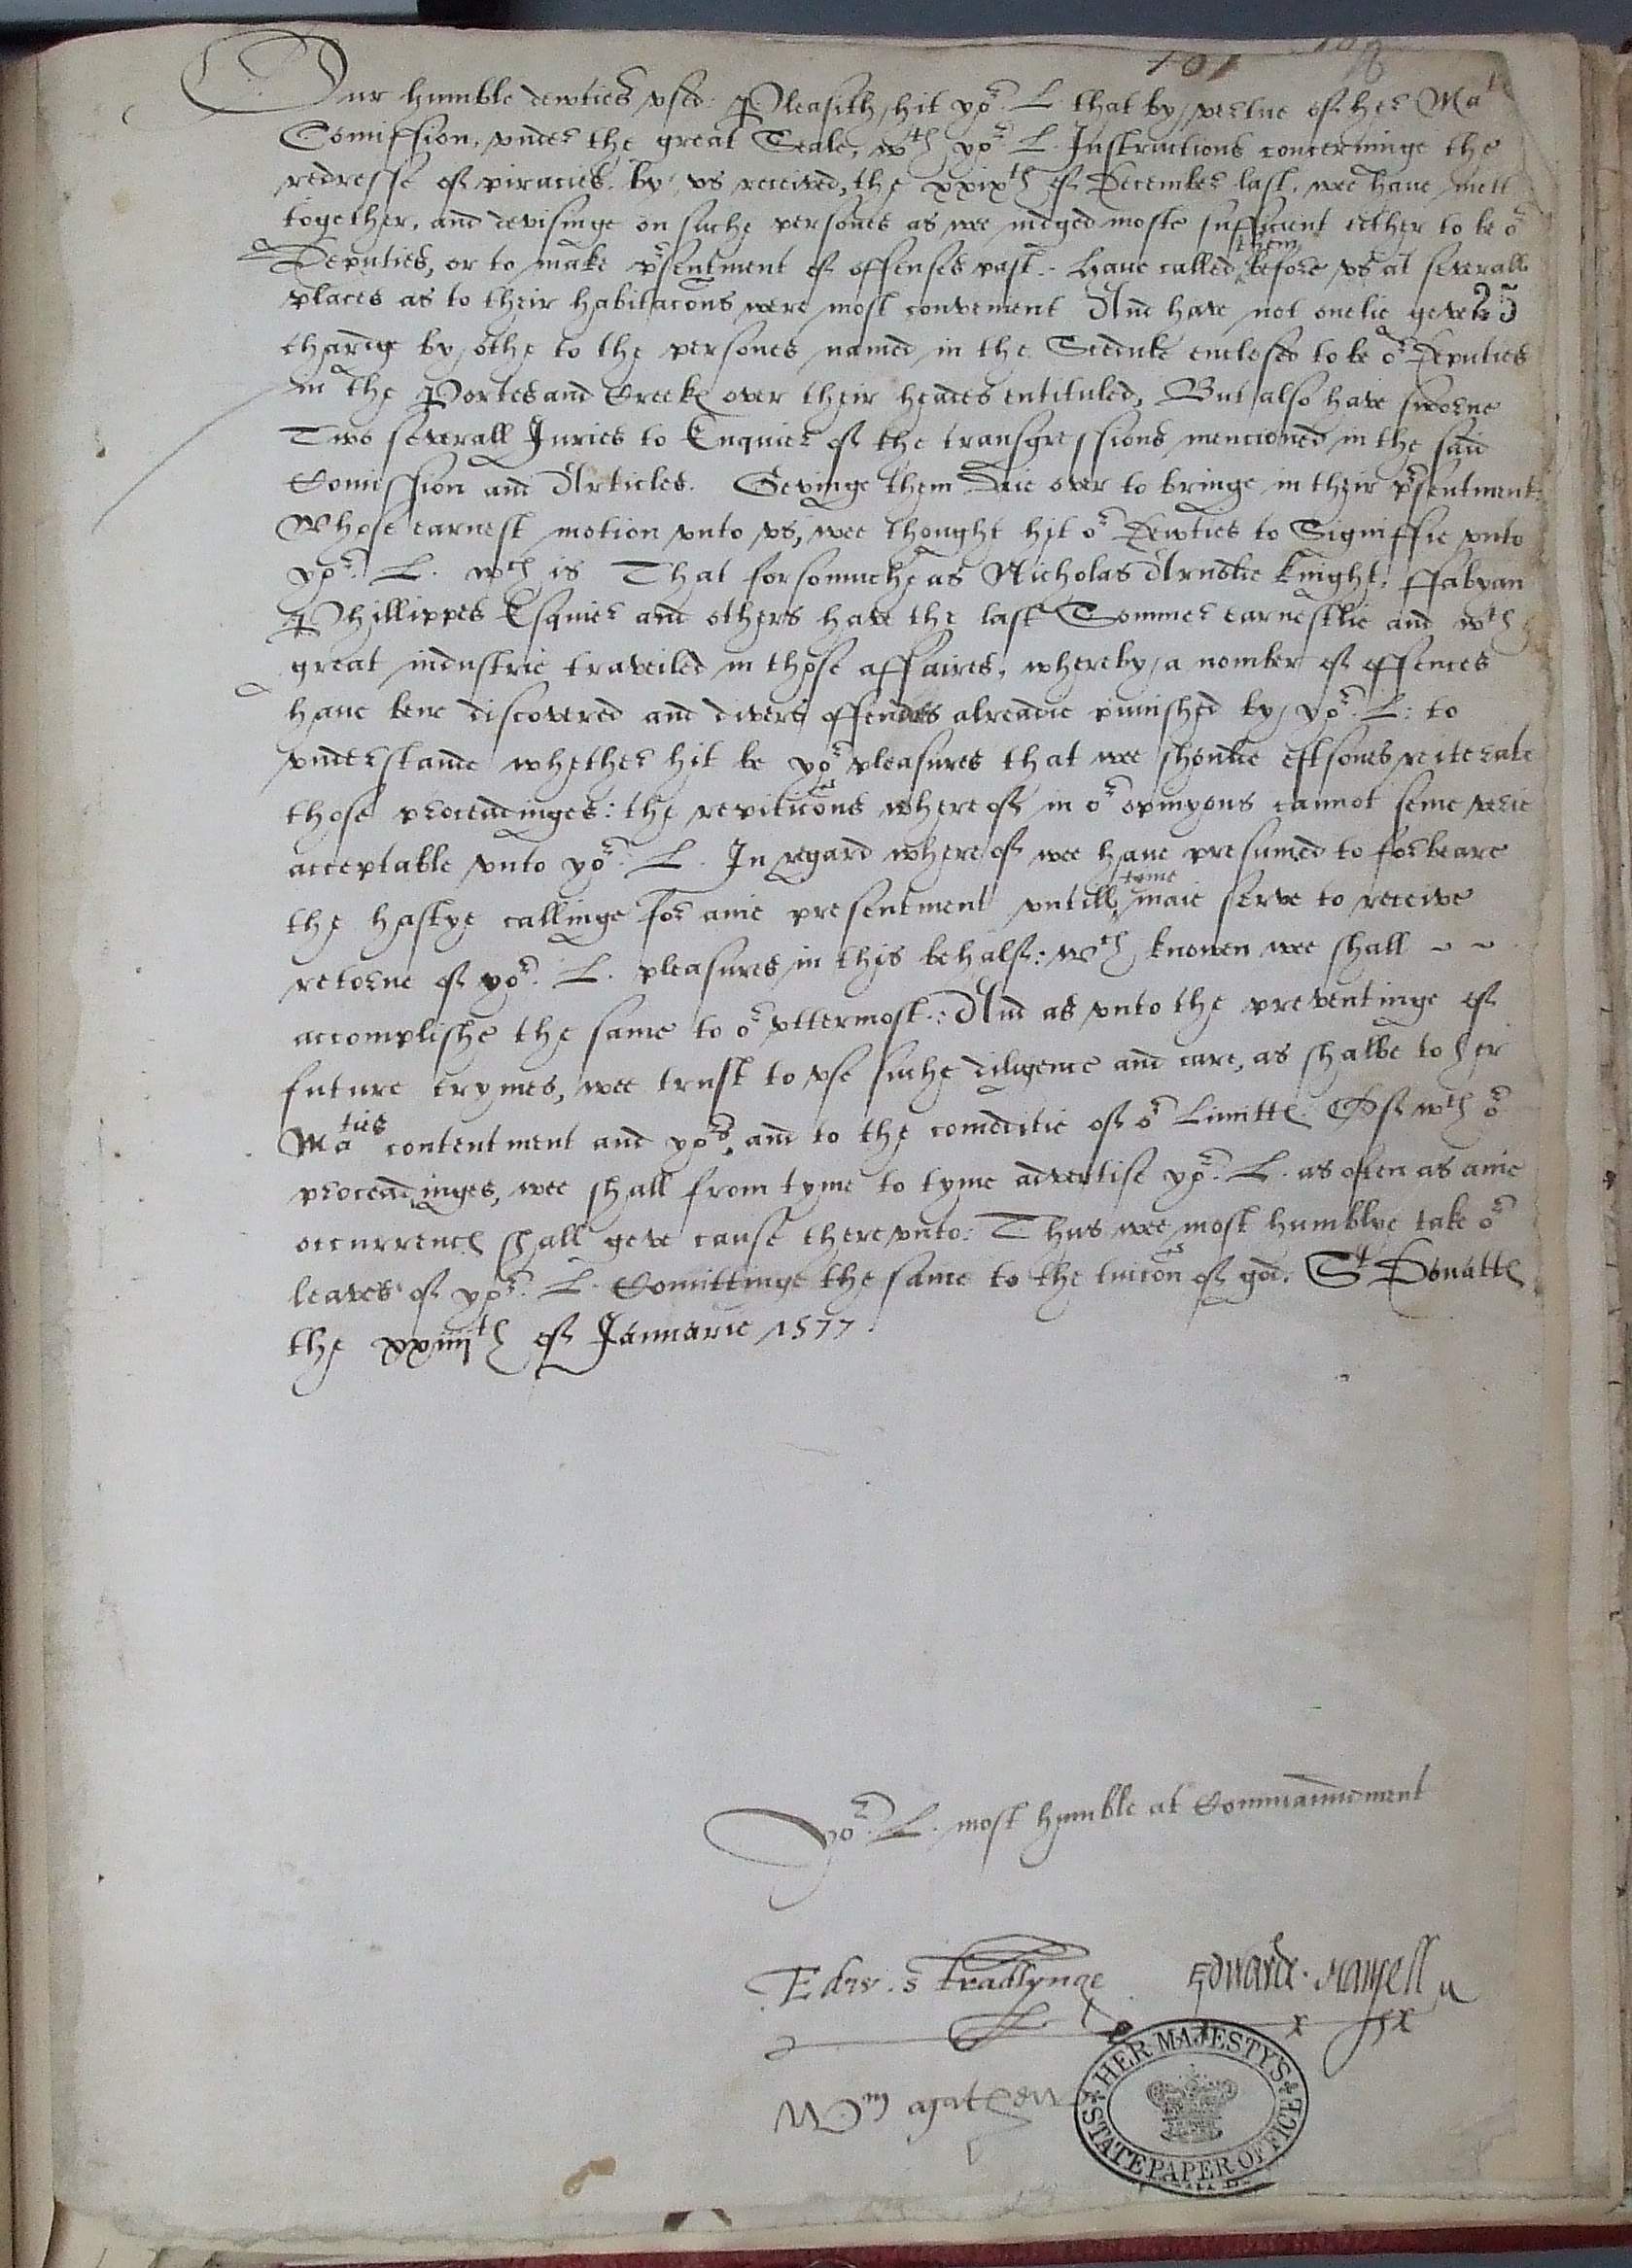 101
Our humble dewties vsed: Pleasith hit yor. L. that by vertue of her Matie
Comission, vnder the great Seale, wth yor. L. Instructions concerninge the
redresse of piracies, by vs received, the xxixth of December last, wee have mett
together, and devisinge on suche persones as we iudged moste sufficient either to be or
Deputies, or to make prsentment of offenses past. have called them before vs at severall
places as to their habitacons were most convenient And have not onelie geven 25
chardge by othe to the persones named in the Scedule enclosed to be or Deputies
in the Portes and Creekes over their heades entituled, But also have sworne
Two severall Iuries to Enquier of the transgressions mencioned in the said
Comission and Articles. Gevinge them daie over to bringe in their prsentment:
Whose earnest motion vnto vs, wee thought hit or Dewties to Signiffie vnto
yor. L. wch is That forsomuche as Nicholas Arnolde knight, ffabyan
Phillippes Esquier and others have the last Sommer earnestlie and wth
great industrie traveiled in those affaires, whereby a nomber of offences
have bene discovered and divers offendrs alreadie punished by yor. L: to
vnderstande whether hit be yor pleasures that wee shoulde eftsones reiterate
those proceadinges: the repiticons whereof in or opinyons cannot seme verie
acceptable vnto yor. L. In regard whereof wee have presumed to forbeare
the hastye callinge for anie presentment vntill tyme maie serve to receive
retorne of yor. L. pleasures in this behalf: wch knowen wee shall ~ ~
accomplishe the same to or vttermost: And as vnto the preventinge of
future crymes, wee trust to vse suche diligence and care, as shalbe to her
Maties contentment and yors, and to the comoditie of or Limittes. Of wch or
proceadinges, wee shall from tyme to tyme advertise yor. L. as often as anie
occurrences shall geve cause therevnto: Thus wee most humblye take or
leaves of yor. L. Comittinge the same to the tuicon of god. St Donattes
the xxiiijth of Januarie 1577.
Yor. L. most humble at Commaundment
Edw. Stradlynge Edwarde Mansell
Wm Mathew
HER MAJESTY'S
STATE PAPER OFFICE